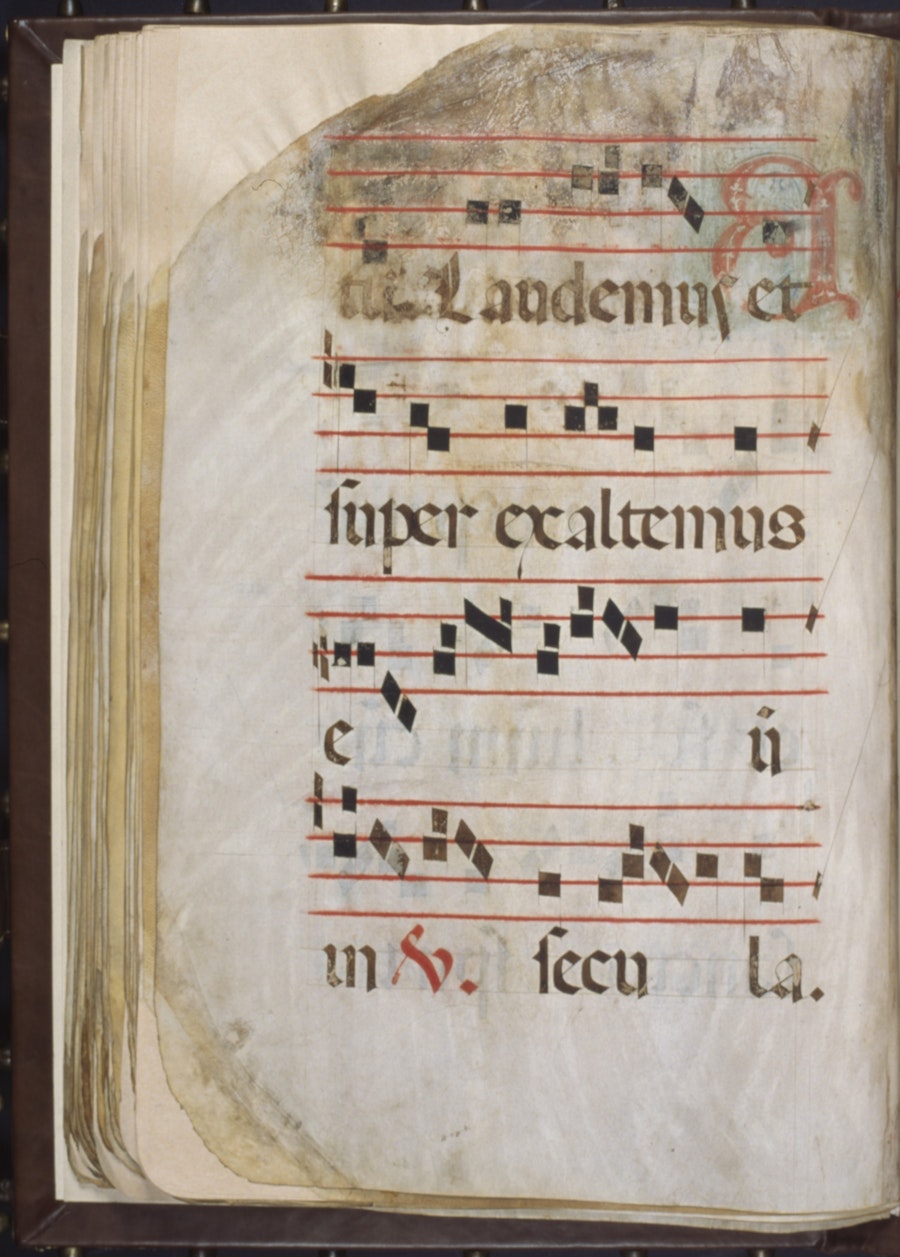 Laudemus et
super exaltemus
e ū
in ℣. secu la.